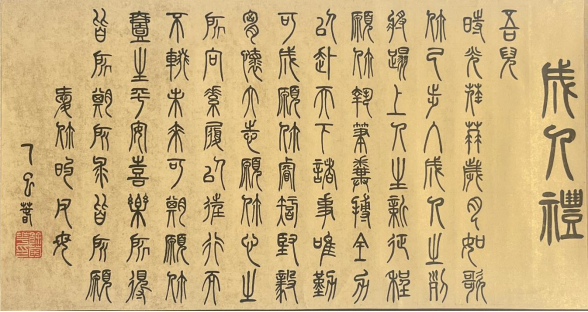 成人禮
吾兒
時光荏苒歲月如歌
你已步入成人之列
將踏上人生新征程
願你執筆奮搏全力
以赴天下諸事唯勤
可成願你睿智堅毅
胸懷大志願你心之
所向素履以往行而
不輟未來可期願你
壹生平安喜樂所得
皆所期所求皆所願
愛你的父母
乙巳春